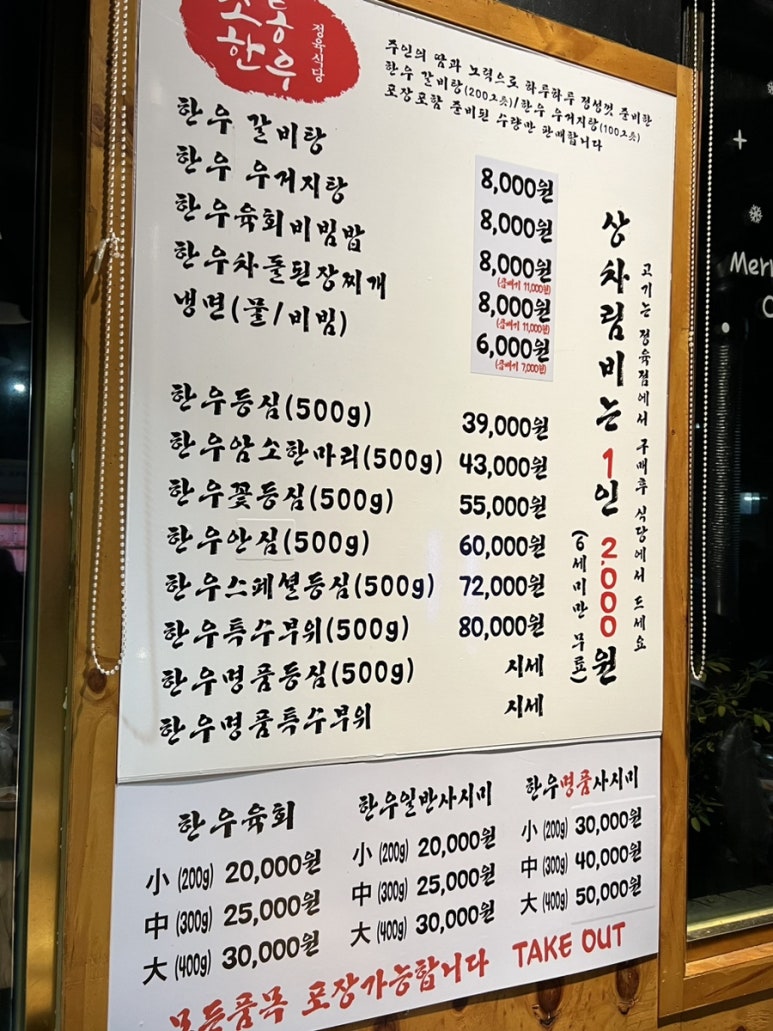 한우
정육식당
주인의 땀과 노력으로 하루하루 정성껏 준비한
한우 갈비탕(200그릇)/한우 우거지탕(100그릇)
포장포함 준비된 수량만 판매합니다
한우 갈비탕 8,000원
한우 우거지탕 8,000원
한우육회비빔밥 8,000원
(곱빼기 11,000원)
한우차돌된장찌개 8,000원
(곱빼기 11,000원)
냉면(물/비빔) 6,000원
(곱빼기 7,000원)
한우등심(500g) 39,000원
한우암소한마리(500g) 43,000원
한우꽃등심(500g) 55,000원
한우안심(500g) 60,000원
한우스페셜등심(500g) 72,000원
한우특수부위(500g) 80,000원
한우명품등심(500g) 시세
한우명품특수부위 시세
고기는 정육점에서 구매후 식당에서 드세요
상차림비는 1인 2,000원
(6세미만 무료)
한우육회
小 (200g) 20,000원
中 (300g) 25,000원
大 (400g) 30,000원
한우일반사시미
小 (200g) 20,000원
中 (300g) 25,000원
大 (400g) 30,000원
한우명품사시미
小 (200g) 30,000원
中 (300g) 40,000원
大 (400g) 50,000원
모든품목 포장가능합니다 TAKE OUT